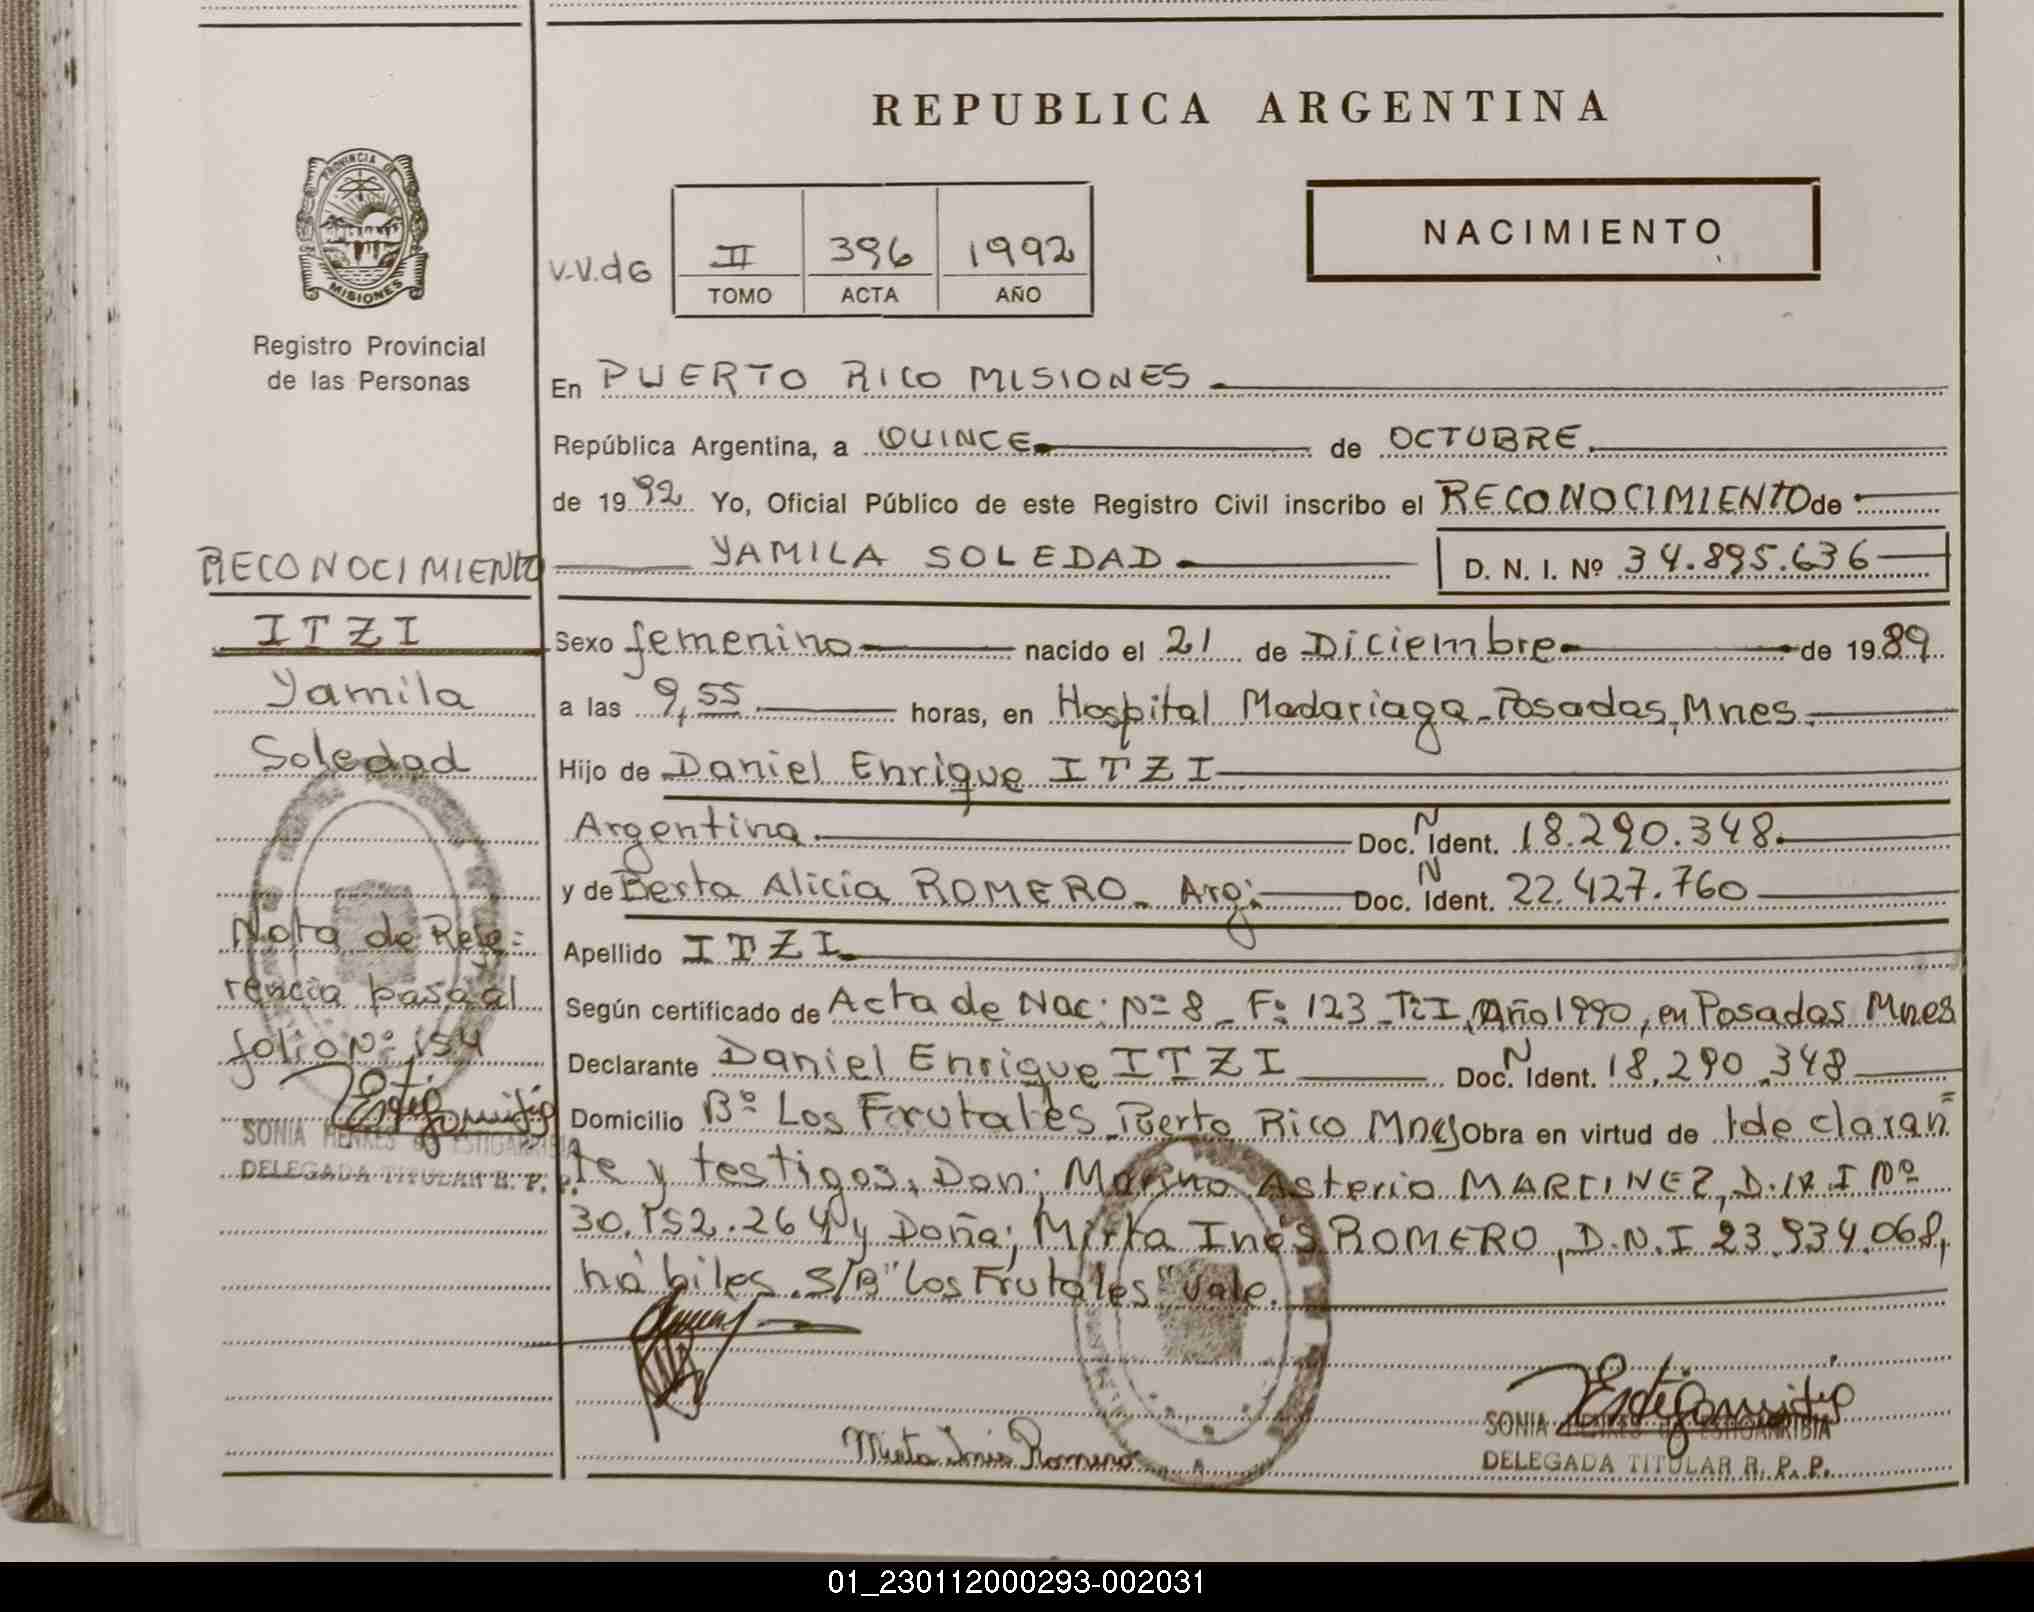 REPUBLICA ARGENTINA
PROVINCIA DE
MISIONES
Registro Provincial
de las Personas
NACIMIENTO
V.V.d6
II 396 1992
TOMO ACTA AÑO
En PUERTO RICO MISIONES
República Argentina, a QUINCE de OCTUBRE
de 1992 Yo, Oficial Público de este Registro Civil inscribo el RECONOCIMIENTO de
YAMILA SOLEDAD D. N. I. Nº 34.895.636
Sexo femenino nacido el 21 de Diciembre de 1989
a las 9,55 horas, en Hospital Madariaga - Posadas, Mnes.
Hijo de Daniel Enrique ITZI
Argentina Doc. N Ident. 18.290.348.
y de Berta Alicia ROMERO - Arg. Doc. N Ident. 22.427.760
Apellido ITZI
Según certificado de Acta de Nac: Nº 8 - Fº 123 - Tº I, Año 1990, en Posadas Mnes
Declarante Daniel Enrique ITZI Doc. N Ident. 18.290.348
Domicilio Bº Los Frutales - Puerto Rico Mnes Obra en virtud de 1 declaran=
te y testigos, Don; Marino Asterio MARTINEZ, D.N.I Nº
30.152.264 y Doña; Mirta Inés ROMERO, D.N.I 23.934.068,
hábiles. S/B "Los Frutales" Vale.
Mirta Inés Romero
SONIA HENKES DE
DELEGADA TITULAR R. P. P.
RECONOCIMIENTO
ITZI
Yamila
Soledad
Nota de Refe=
rencia pasa al
folio Nº 154
SONIA HENKES DE
DELEGADA TITULAR R. P. P.
01_230112000293-002031